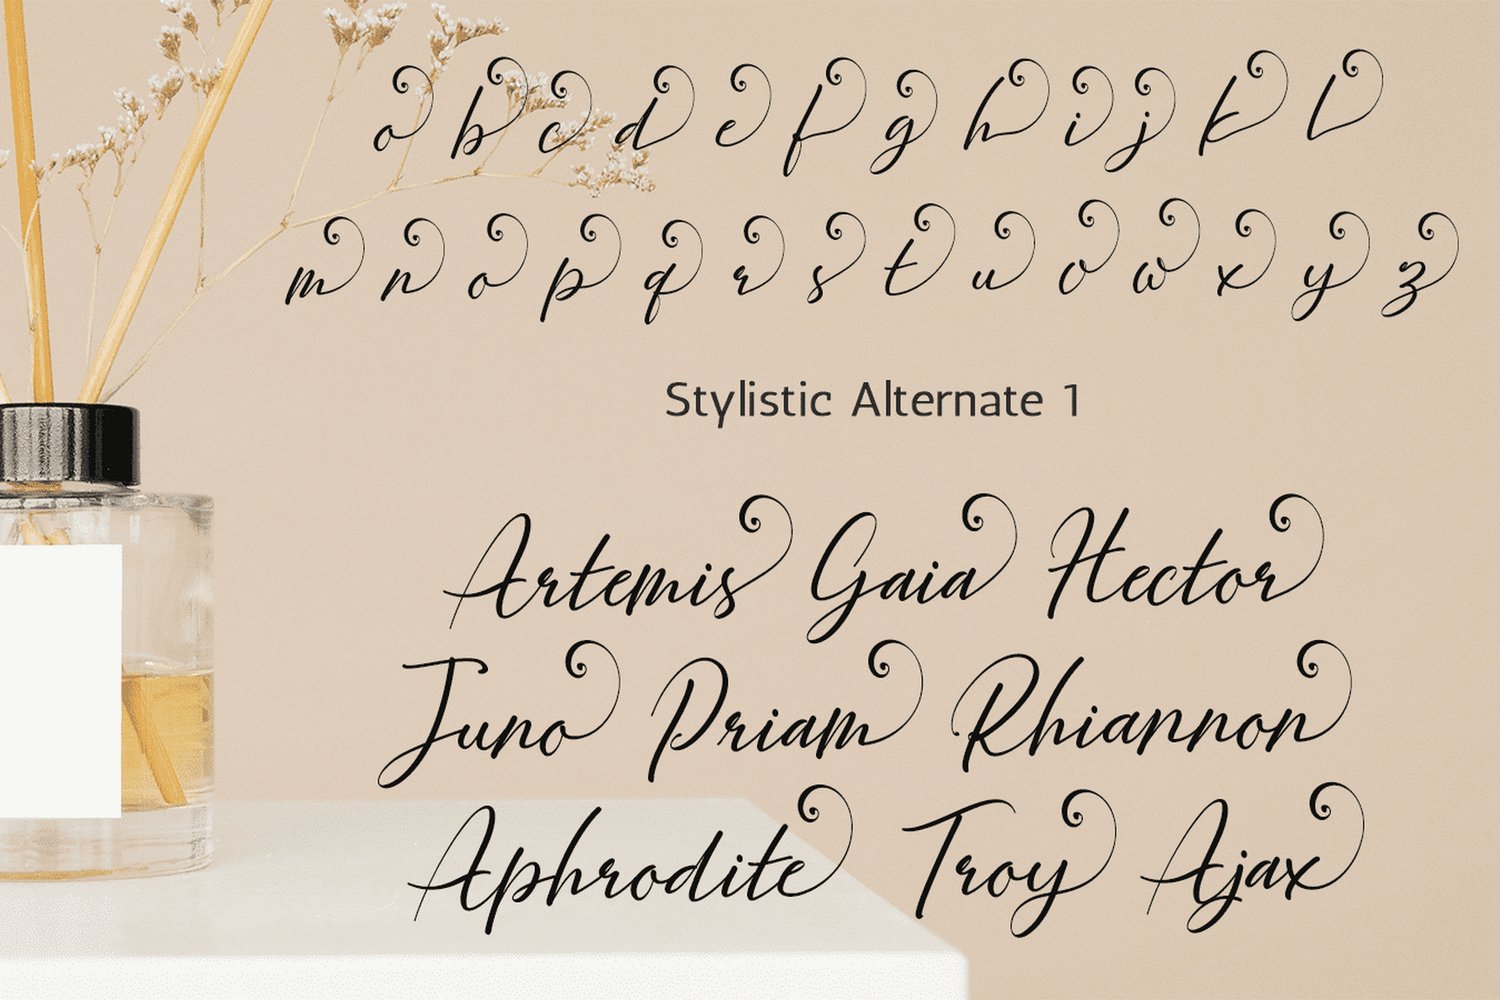 a b c d e f g h i j k l
m n o p q r s t u v w x y z
Stylistic Alternate 1
Artemis Gaia Hector
Juno Priam Rhiannon
Aphrodite Troy Ajax